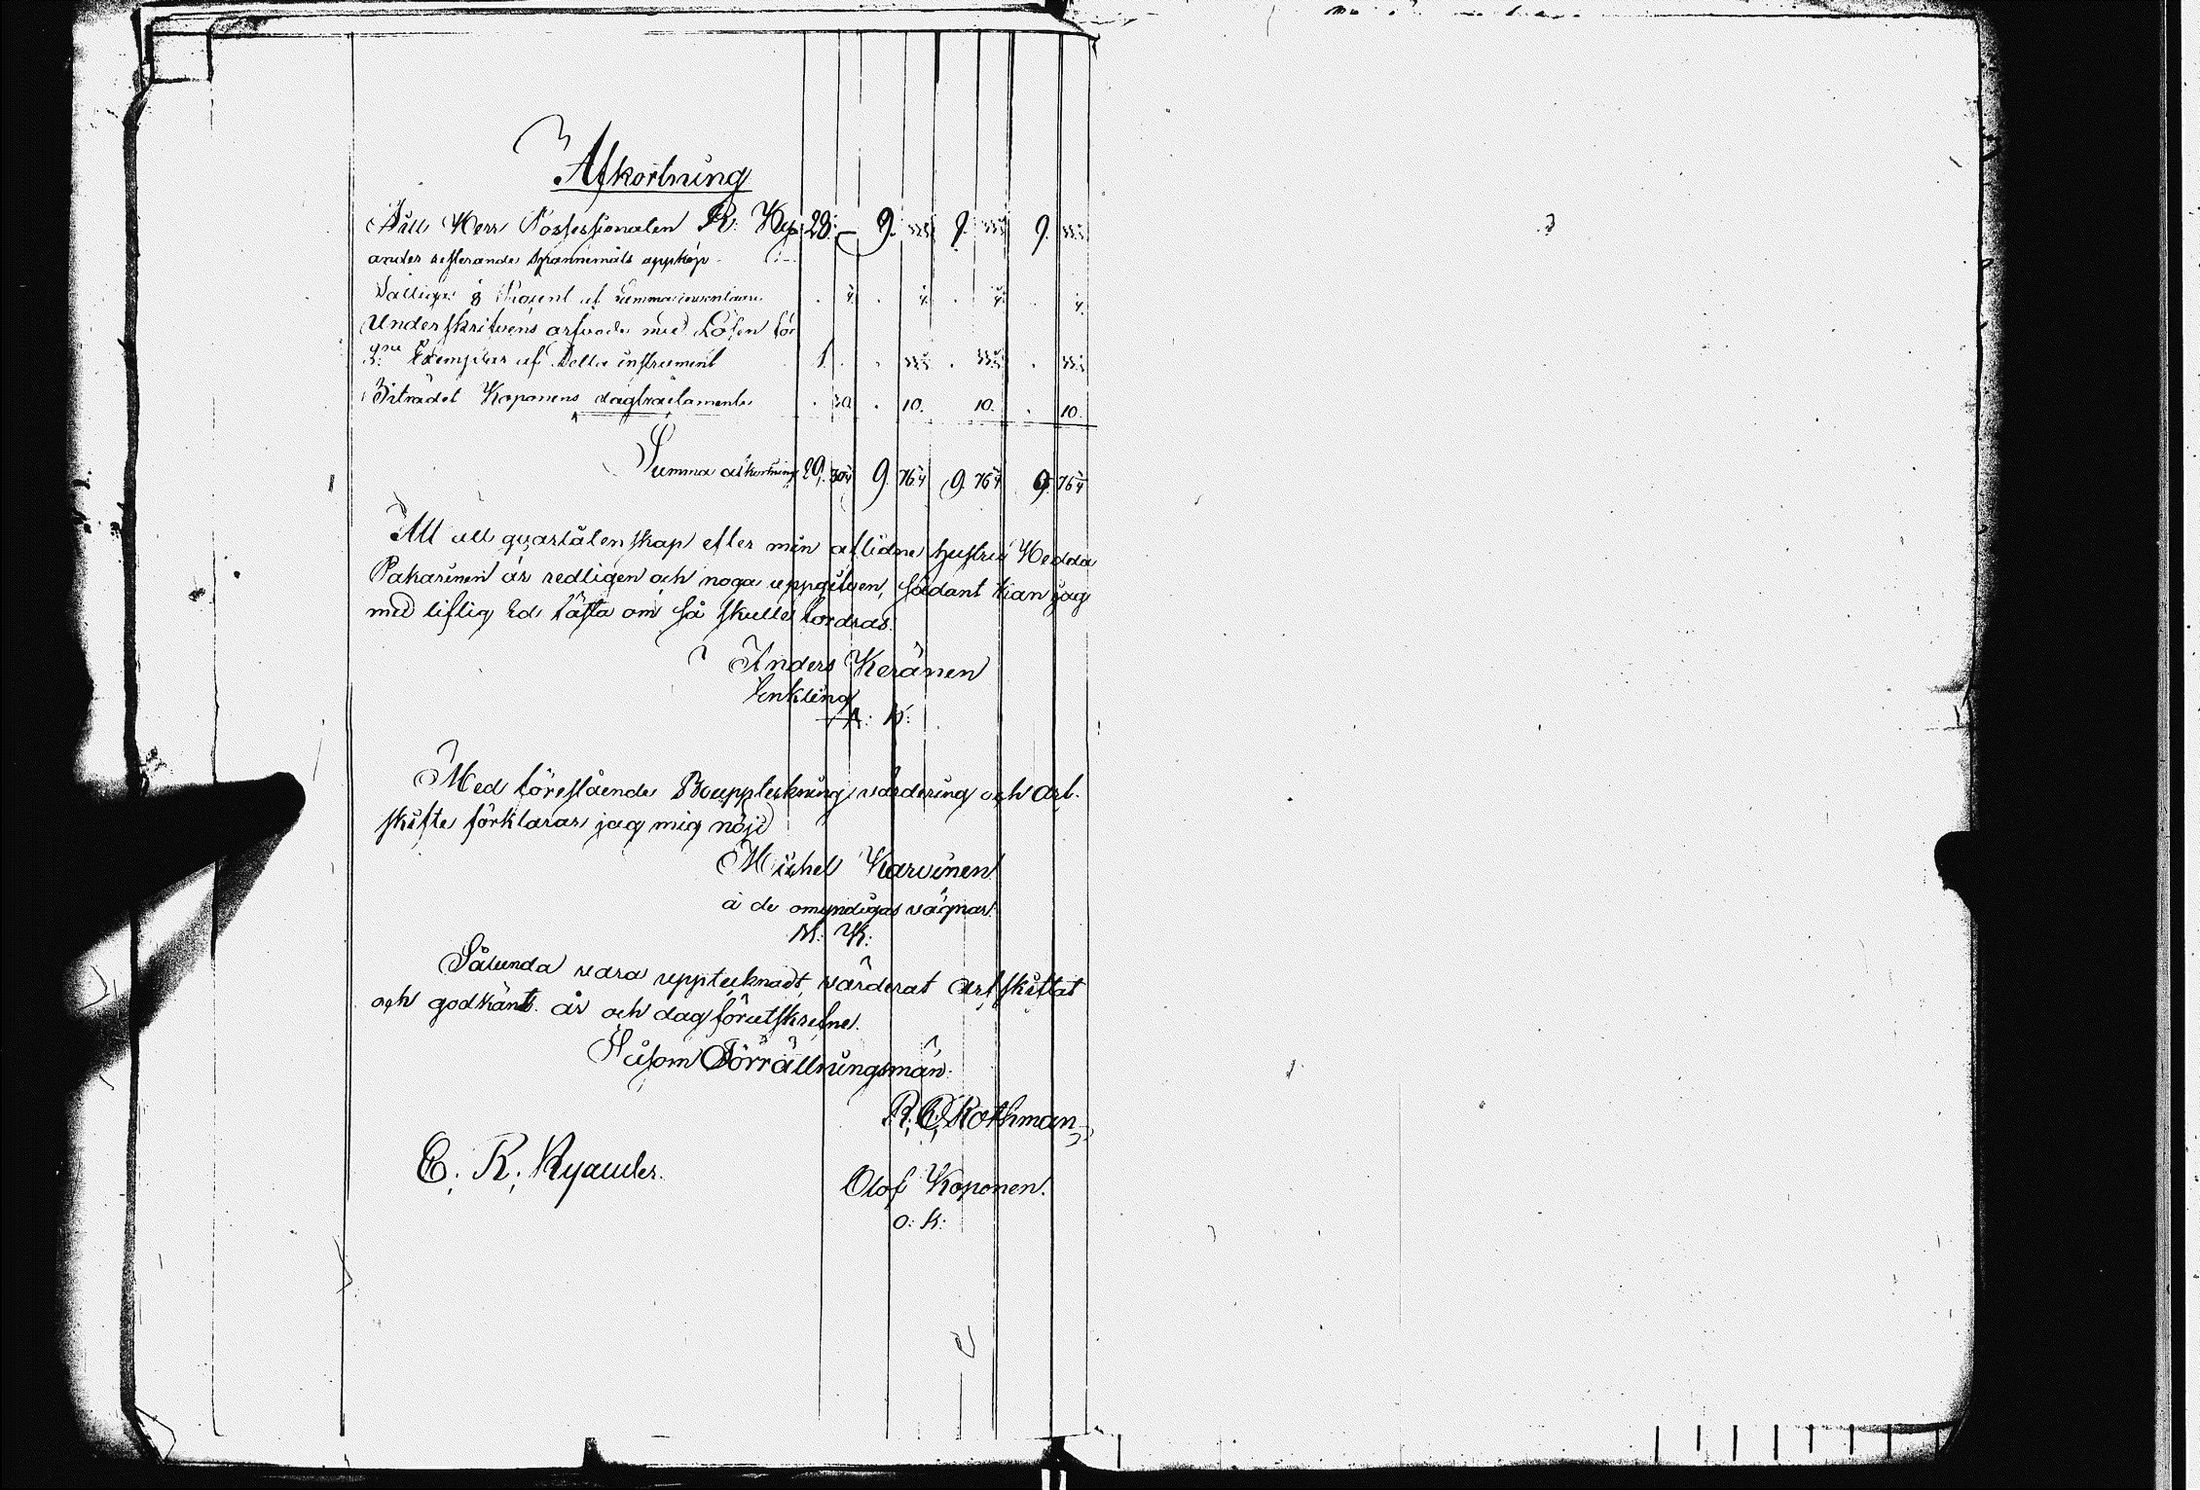 Afkortning
Till Herr Possessionaten R: Ky, 28: — 9. 33⅓ 9. 33⅓ 9. 33⅓
ander resterande spannemåls uppköp
Fattige ⅛ Procent af Summa inventarii
Underskrifvens arfvode med Lösen för
3ne Exemplar af Detta instrument 1. 33⅓ 33⅓ 33⅓
Biträdet Koponens dagtraktamente 30 10. 10. 10.
Summa afkortning 29. 9. 76¼ 9. 76¼ 9. 76¼
Att all qvarlåtenskap efter min aflidne hustru Hedda
Pakarinen är redligen och noga uppgifven, sådant kan jag
med liflig Ed fästa om så skulle fordras.
Anders Keränen
Enkling
A: K:
Med föreståendes Bouppteckning, värdering och Arf-
skifte förklarar jag mig nöjd
Michel Karvinen
å de omyndigas vägnar.
M: K:
Sålunda vara upptecknadt, värderat arfskiftat
och godkänt. år och dag förutskrefne.
Såsom Förrättningsmän.
R. C. Rothman
E. R. Kyander.
Olof Koponen.
O: K: